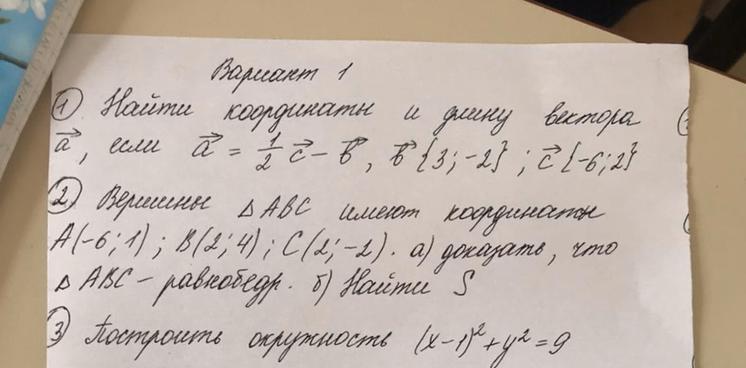 Вариант 1
① Найти координаты и длину вектора
a⃗, если a⃗ = 1/2 c⃗ - b⃗, b⃗ {3; -2} ; c⃗ {-6; 2}
② Вершины △ABC имеют координаты
A(-6; 1) ; B(2; 4) ; C(2; -2). а) доказать, что
△ABC - равнобедр. б) Найти S
③ Построить окружность (x-1)² + y² = 9